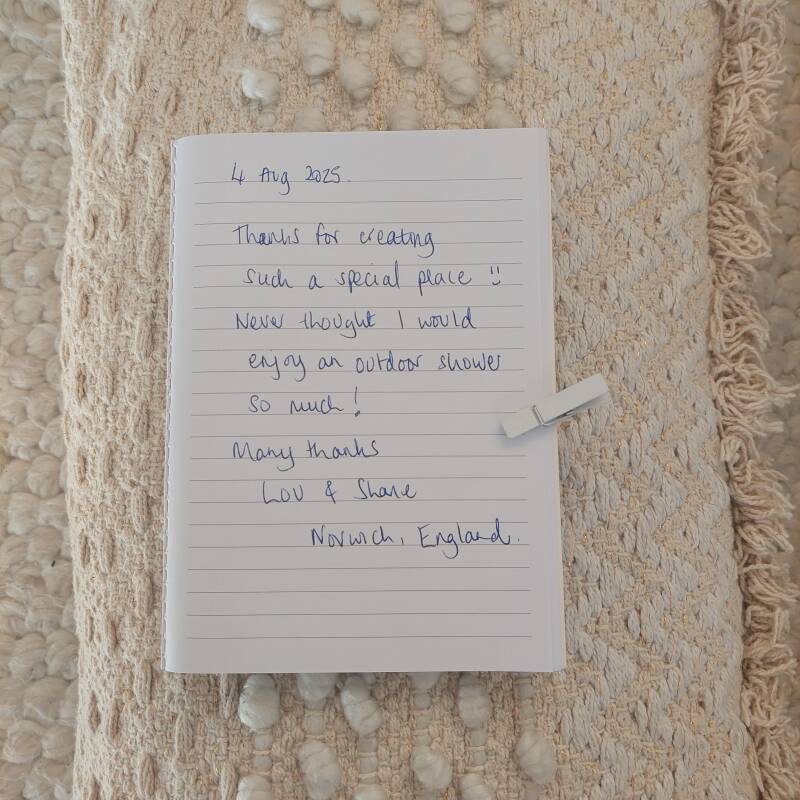 4 Aug 2025.
Thanks for creating
such a special place !!
Never thought I would
enjoy an outdoor shower
so much!
Many thanks
Lou & Shane
Norwich, England.